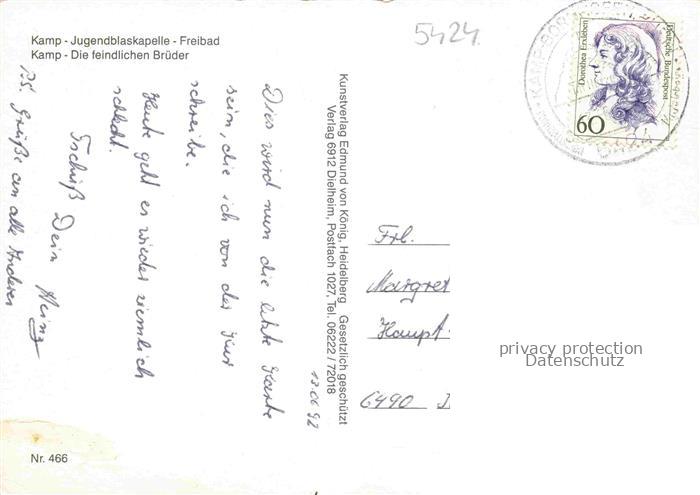 Kamp - Jugendblaskapelle - Freibad
Kamp - Die feindlichen Brüder
5424
Dorothea Erxleben
Deutsche Bundespost
60
13.06.92
Dies wird nun die letzte Karte
sein, die ich von der Kur
schreibe.
Heute geht es wieder ziemlich
schlecht.
Tschüß Dein Heinz
PS. Grüße an alle Anderen
Kunstverlag Edmund von König, Heidelberg Gesetzlich geschützt
Verlag 6912 Dielheim, Postfach 1027, Tel. 06222 / 72018
Frl.
Margret
Haupt
6490
privacy protection
Datenschutz
Nr. 466